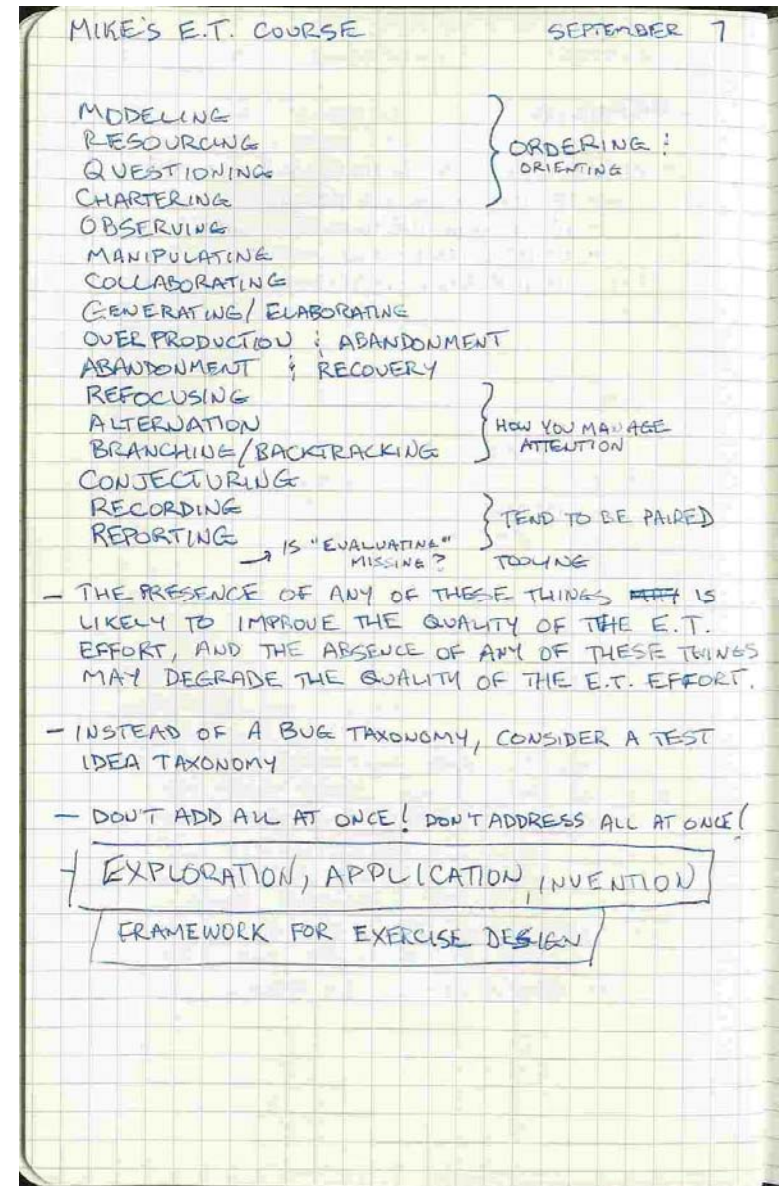 MIKE'S E.T. COURSE SEPTEMBER 7
MODELING
RESOURCING
QUESTIONING
CHARTERING
ORDERING &
ORIENTING
OBSERVING
MANIPULATING
COLLABORATING
GENERATING/ELABORATING
OVERPRODUCTION & ABANDONMENT
ABANDONMENT & RECOVERY
REFOCUSING
ALTERNATION
BRANCHING/BACKTRACKING
HOW YOU MANAGE
ATTENTION
CONJECTURING
RECORDING
REPORTING
TEND TO BE PAIRED
→ IS "EVALUATING"
MISSING?
TOOLING
- THE PRESENCE OF ANY OF THESE THINGS IS
LIKELY TO IMPROVE THE QUALITY OF THE E.T.
EFFORT, AND THE ABSENCE OF ANY OF THESE THINGS
MAY DEGRADE THE QUALITY OF THE E.T. EFFORT.
- INSTEAD OF A BUG TAXONOMY, CONSIDER A TEST
IDEA TAXONOMY
- DON'T ADD ALL AT ONCE! DON'T ADDRESS ALL AT ONCE!
EXPLORATION, APPLICATION, INVENTION
FRAMEWORK FOR EXERCISE DESIGN